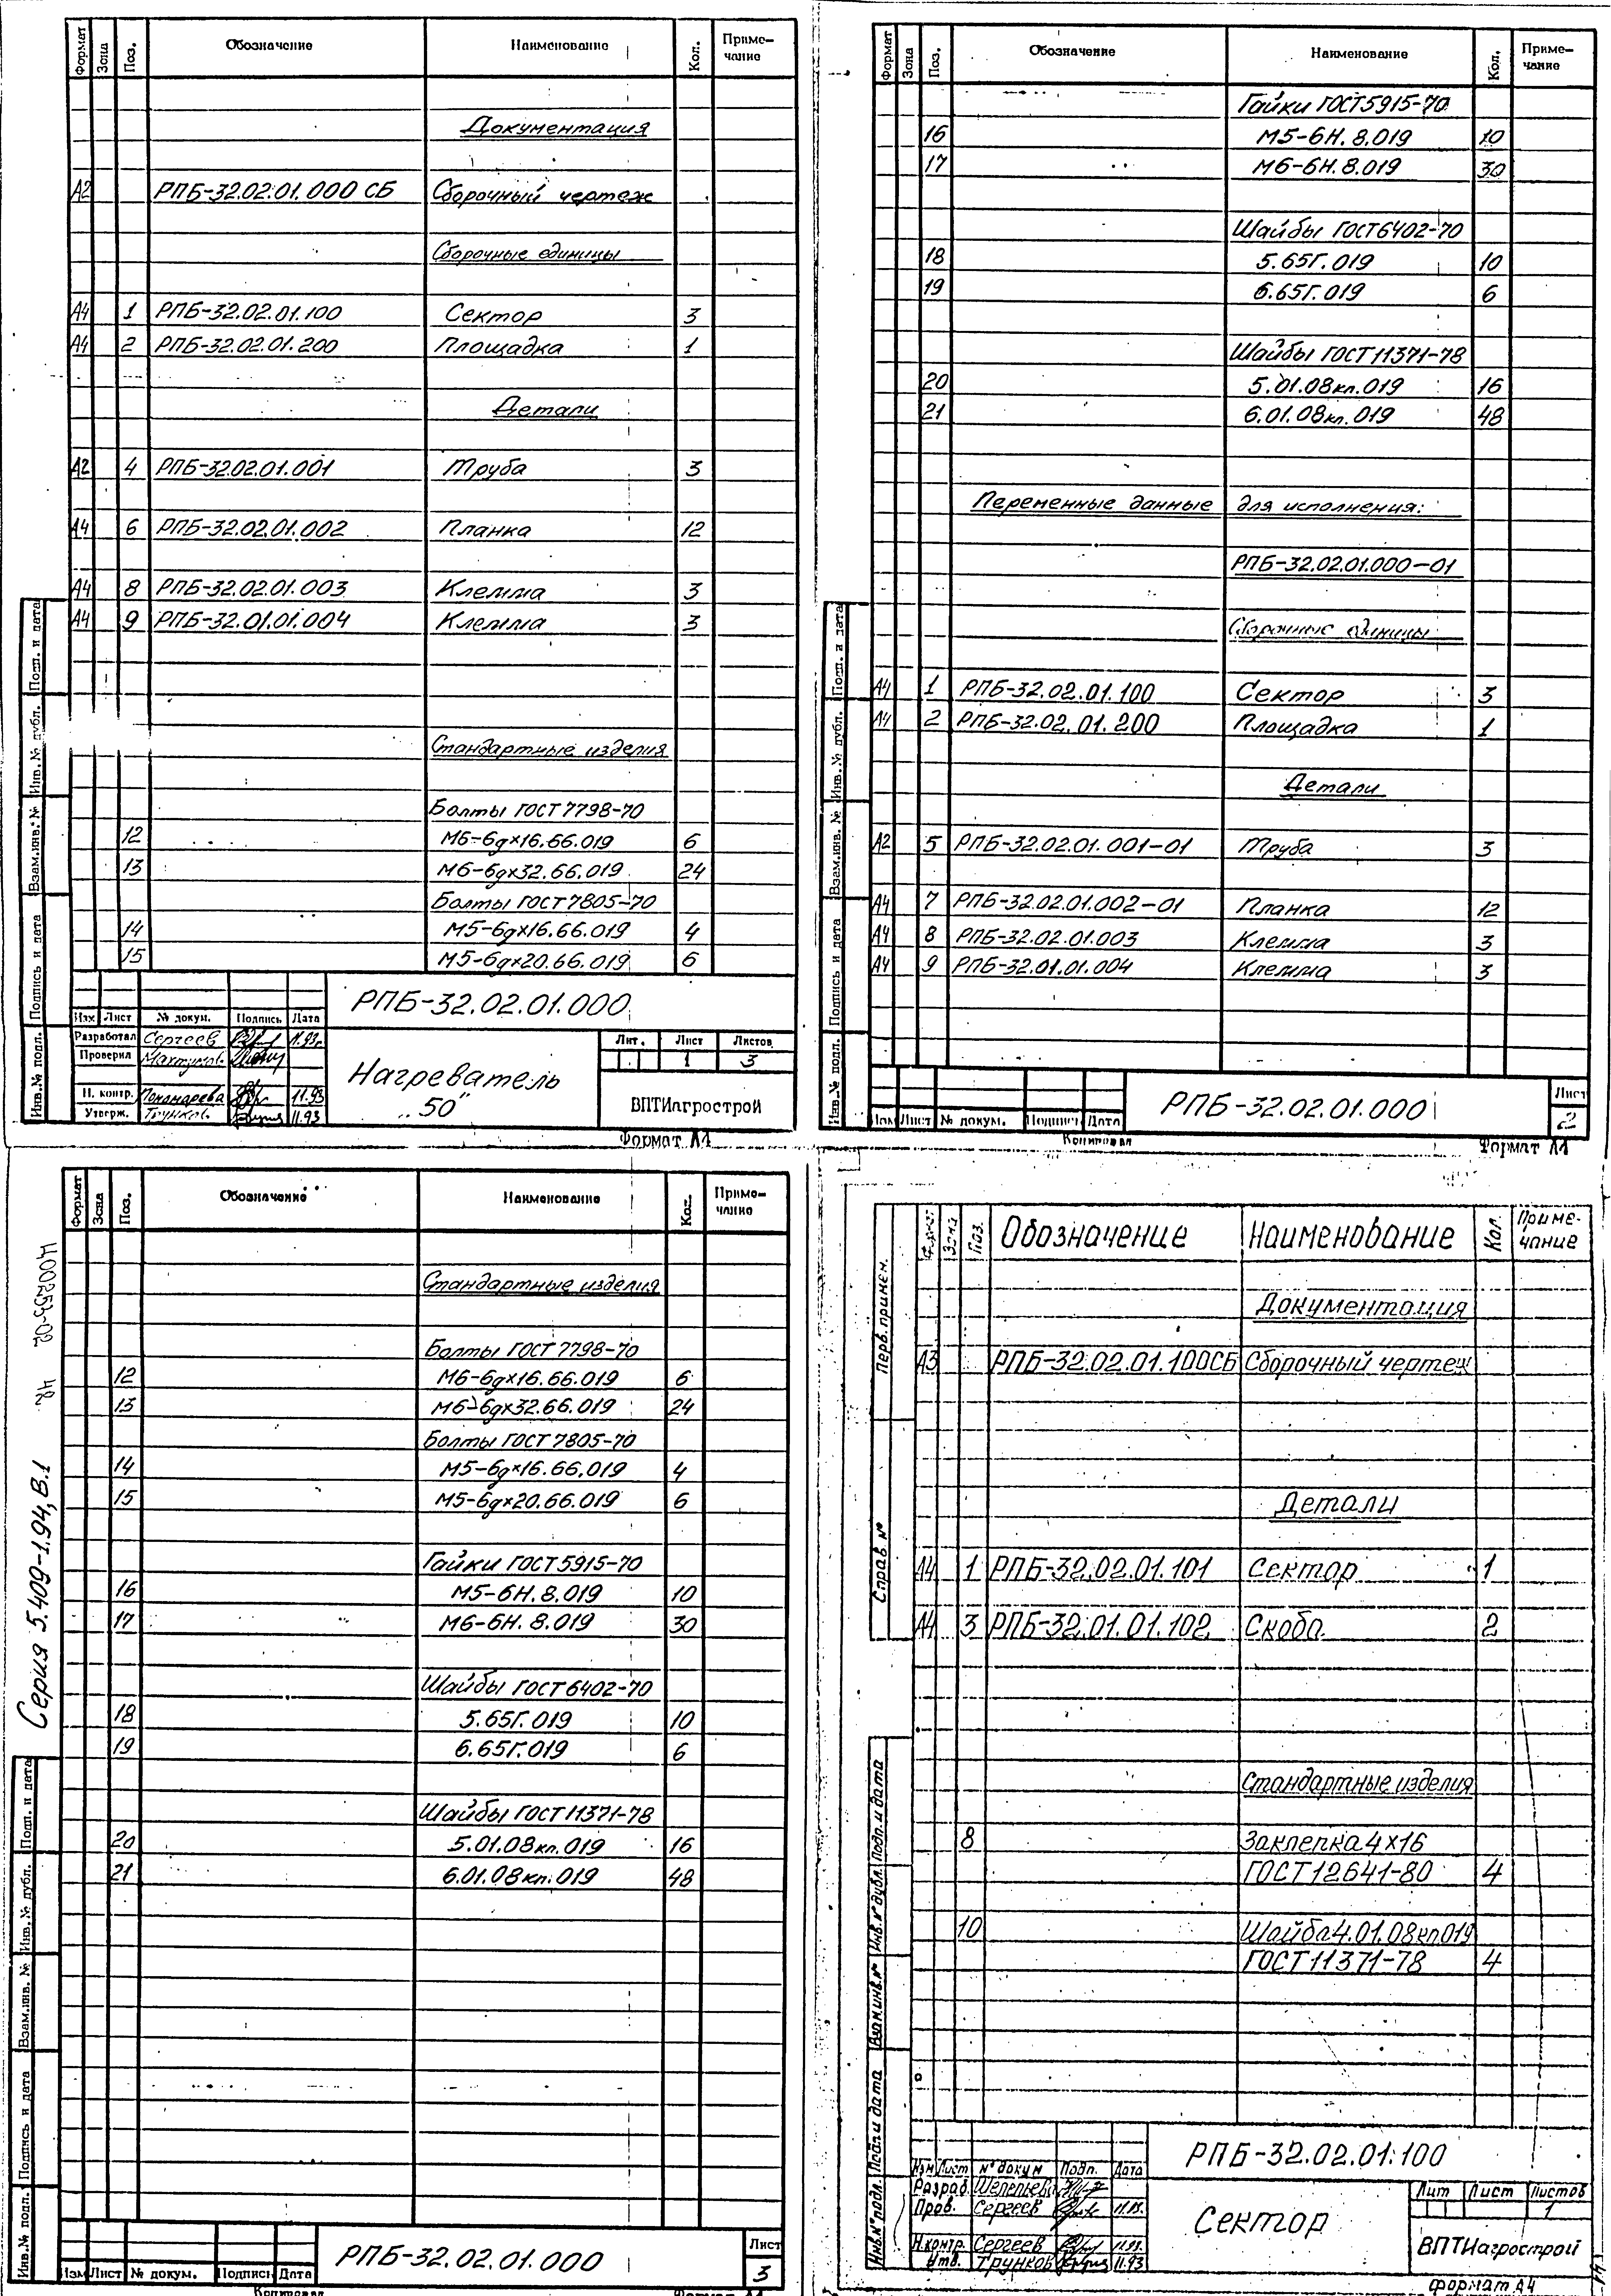 Формат Зона Поз. Обозначение Наименование Кол. Приме-чание
Документация
А2 РПБ-32.02.01.000 СБ Сборочный чертеж
Сборочные единицы
А4 1 РПБ-32.02.01.100 Сектор 3
А4 2 РПБ-32.02.01.200 Площадка 1
Детали
А2 4 РПБ-32.02.01.001 Труба 3
А4 6 РПБ-32.02.01.002 Планка 12
А4 8 РПБ-32.02.01.003 Клемма 3
А4 9 РПБ-32.01.01.004 Клемма 3
Стандартные изделия
Болты ГОСТ 7798-70
12 М6-6gх16.66.019 6
13 М6-6gх32.66.019 24
Болты ГОСТ 7805-70
14 М5-6gх16.66.019 4
15 М5-6gх20.66.019 6
РПБ-32.02.01.000
Изм Лист № докум. Подпись Дата
Разработал Сергеев 11.93г.
Проверил
Н. контр. Пономарева 11.93
Утверж. Трунков 11.93
Нагреватель
„50"
Лит. Лист Листов
1 3
ВПТИагрострой
Формат А4
Инв.№ подл. Подпись и дата Взам.инв.№ Инв.№ дубл. Подп. и дата
Формат Зона Поз. Обозначение Наименование Кол. Приме-чание
Гайки ГОСТ5915-70
16 М5-6Н.8.019 10
17 М6-6Н.8.019 30
Шайбы ГОСТ6402-70
18 5.65Г.019 10
19 6.65Г.019 6
Шайбы ГОСТ11371-78
20 5.01.08кп.019 16
21 6.01.08кп.019 48
Переменные данные для исполнения:
РПБ-32.02.01.000-01
Сборочные единицы
А4 1 РПБ-32.02.01.100 Сектор 3
А4 2 РПБ-32.02.01.200 Площадка 1
Детали
А2 5 РПБ-32.02.01.001-01 Труба 3
А4 7 РПБ-32.02.01.002-01 Планка 12
А4 8 РПБ-32.02.01.003 Клемма 3
А4 9 РПБ-32.01.01.004 Клемма 3
Изм Лист № докум. Подпись Дата
РПБ-32.02.01.000
Лист
2
Копировал
Формат А4
Инв.№ подл. Подпись и дата Взам.инв.№ Инв.№ дубл. Подп. и дата
Формат Зона Поз. Обозначение Наименование Кол. Приме-чание
Стандартные изделия
Болты ГОСТ 7798-70
12 М6-6gх16.66.019 6
13 М6-6gх32.66.019 24
Болты ГОСТ 7805-70
14 М5-6gх16.66.019 4
15 М5-6gх20.66.019 6
Гайки ГОСТ5915-70
16 М5-6Н.8.019 10
17 М6-6Н.8.019 30
Шайбы ГОСТ6402-70
18 5.65Г.019 10
19 6.65Г.019 6
Шайбы ГОСТ11371-78
20 5.01.08кп.019 16
21 6.01.08кп.019 48
Изм Лист № докум. Подпись Дата
РПБ-32.02.01.000
Лист
3
Копировал
Формат А4
Серия 5.409-1.94, В.1
42
Инв.№ подл. Подпись и дата Взам.инв.№ Инв.№ дубл. Подп. и дата
Формат Зона Поз. Обозначение Наименование Кол. Приме-чание
Документация
А3 РПБ-32.02.01.100СБ Сборочный чертеж
Детали
А4 1 РПБ-32.02.01.101 Сектор 1
А4 3 РПБ-32.01.01.102 Скоба 2
Стандартные изделия
8 Заклепка 4х16
ГОСТ12641-80 4
10 Шайба4.01.08кп019
ГОСТ11371-78 4
РПБ-32.02.01.100
Изм Лист № докум Подп. Дата
Разраб.
Пров. Сергеев 11.93.
Н.контр. Сергеев 11.93.
Утв. Трунков 11.93
Сектор
Лит Лист Листов
1
ВПТИагрострой
Формат А4
Перв. примен.
Справ. №
Инв.№подл. Подп. и дата Взам.инв.№ Инв.№дубл. Подп. и дата